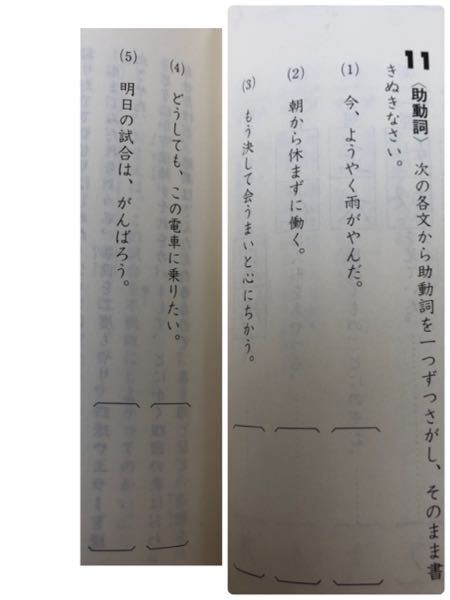 11 〈助動詞〉 次の各文から助動詞を一つずつさがし、そのまま書
きぬきなさい。
(1) 今、ようやく雨がやんだ。
(2) 朝から休まずに働く。
(3) もう決して会うまいと心にちかう。
(4) どうしても、この電車に乗りたい。
(5) 明日の試合は、がんばろう。